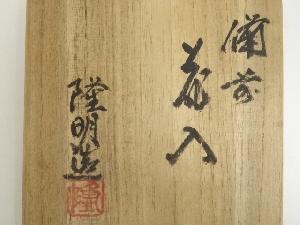 備前
花入
隆明造
隆